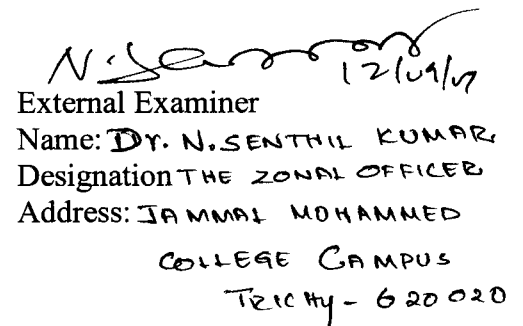 12/09/07
External Examiner
Name: Dr. N. SENTHIL KUMAR
Designation THE ZONAL OFFICER
Address: JAMMAL MOHAMMED
COLLEGE CAMPUS
TRICHY - 620020